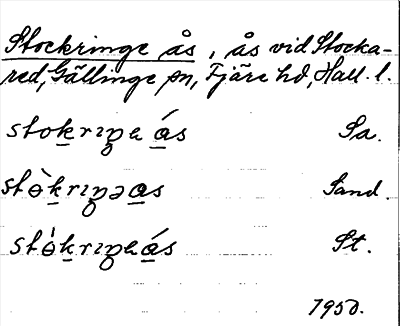 Stockringe ås, ås vid Stocka-
red, Gällinge sn, Fjäre hd, Hall. l.
stokrıŋa ás Sa.
stɵ̀krıŋəas Sand.
stɵ́krıŋaás St.
1950.